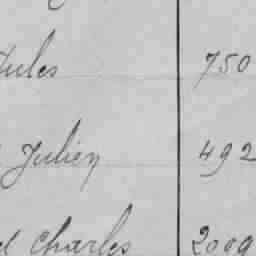 Jules 750
Julien 492
Charles 2009